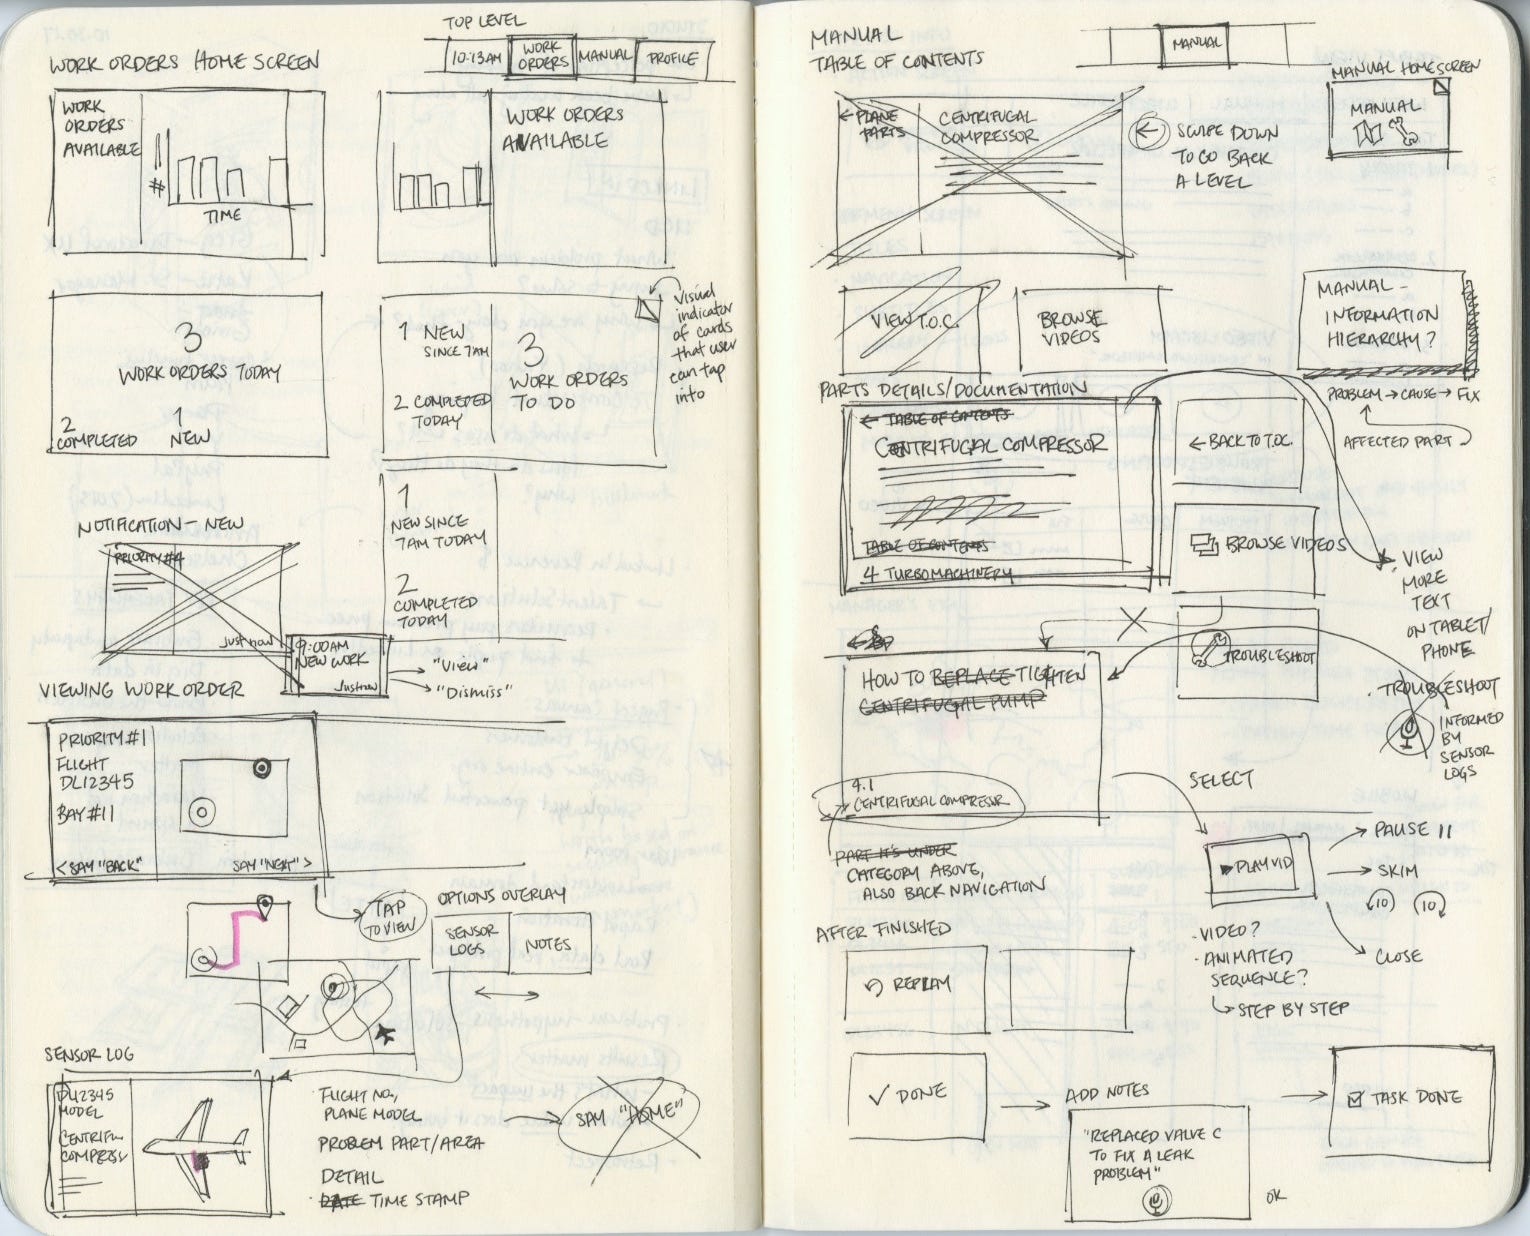 TOP LEVEL
10:13AM
WORK ORDERS
MANUAL
PROFILE
WORK ORDERS HOME SCREEN
WORK
ORDERS
AVAILABLE
#
TIME
WORK ORDERS
AVAILABLE
3
WORK ORDERS TODAY
2
COMPLETED
1
NEW
1 NEW
SINCE 7AM
3
WORK ORDERS
TO DO
2 COMPLETED
TODAY
Visual
indicator
of cards
that user
can tap
into
1
NEW SINCE
7AM TODAY
2
COMPLETED
TODAY
NOTIFICATION - NEW
PRIORITY #4
Just now
9:00AM
NEW WORK
Just now
"View"
"Dismiss"
VIEWING WORK ORDER
PRIORITY #1
FLIGHT
DL12345
BAY #11
< SAY "BACK"
SAY "NEXT" >
TAP
TO VIEW
OPTIONS OVERLAY
SENSOR
LOGS
NOTES
SENSOR LOG
DL12345
MODEL
CENTRIFU
COMPRESS
FLIGHT NO.,
PLANE MODEL
PROBLEM PART/AREA
DETAIL
· DATE TIME STAMP
SAY "HOME"
MANUAL
TABLE OF CONTENTS
MANUAL
MANUAL HOMESCREEN
MANUAL
← PLANE
PARTS
CENTRIFUGAL
COMPRESSOR
SWIPE DOWN
TO GO BACK
A LEVEL
VIEW T.O.C.
BROWSE
VIDEOS
MANUAL -
INFORMATION
HIERARCHY?
PROBLEM → CAUSE → FIX
AFFECTED PART
PARTS DETAILS/DOCUMENTATION
← TABLE OF CONTENTS
CENTRIFUGAL COMPRESSOR
TABLE OF CONTENTS
4 TURBOMACHINERY
← BACK TO T.O.C.
BROWSE VIDEOS
· VIEW
MORE
TEXT
ON TABLET/
PHONE
TROUBLESHOOT
· TROUBLESHOOT
INFORMED
BY
SENSOR
LOGS
HOW TO REPLACE TIGHTEN
CENTRIFUGAL PUMP
4.1
CENTRIFUGAL COMPRESSOR
PART IT'S UNDER
CATEGORY ABOVE,
ALSO BACK NAVIGATION
SELECT
▶PLAY VID
PAUSE II
SKIM
10
10
CLOSE
· VIDEO?
· ANIMATED
SEQUENCE?
STEP BY STEP
AFTER FINISHED
REPLAY
✓ DONE
ADD NOTES
"REPLACED VALVE C
TO FIX A LEAK
PROBLEM"
OK
TASK DONE